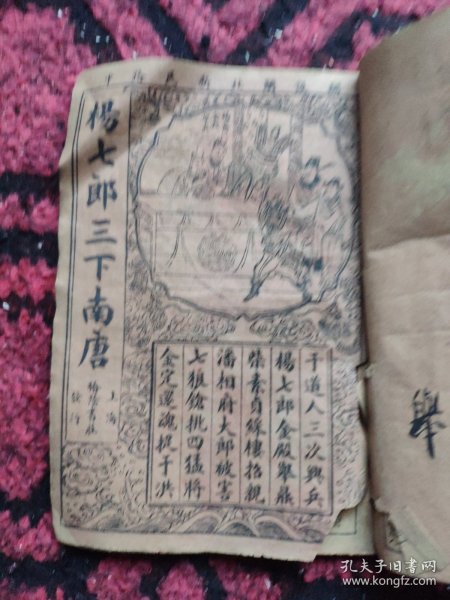 楊七郎三下南唐
上海
書莊
發行
于道人三次興兵
楊七郎金殿舉鼎
柴素貞綵樓招親
潘相府大郎被害
七狼鎗挑四猛將
金定還魂捉于洪
舉
孔夫子旧书网
www.kongfz.com